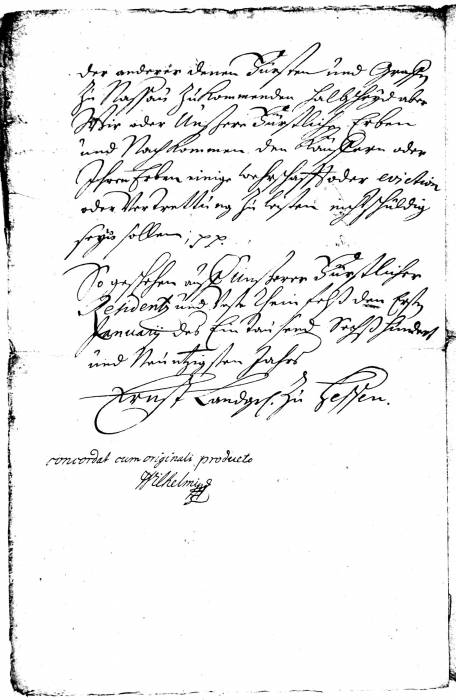 der anderer denen Fürsten und Graffen
Zu Nassau Zukommenden halbscheyd aber
Wir oder Unssere Fürstliche Erben
und Nachkommen den Käuffern oder
Ihren Erben einige wehrschafft oder eviction
oder Vertrettung zu leisten nicht schuldig
seyn sollen. pp.
So geschehen auff unsserer Fürstlicher
Residentz und Vest Rheinfelß den
January des Ein Tausend Sechß hundert
und Neuntzigsten Jahrs
Ernst Landgf. zu Hessen.
concordat cum originali producto
Wilhelmi